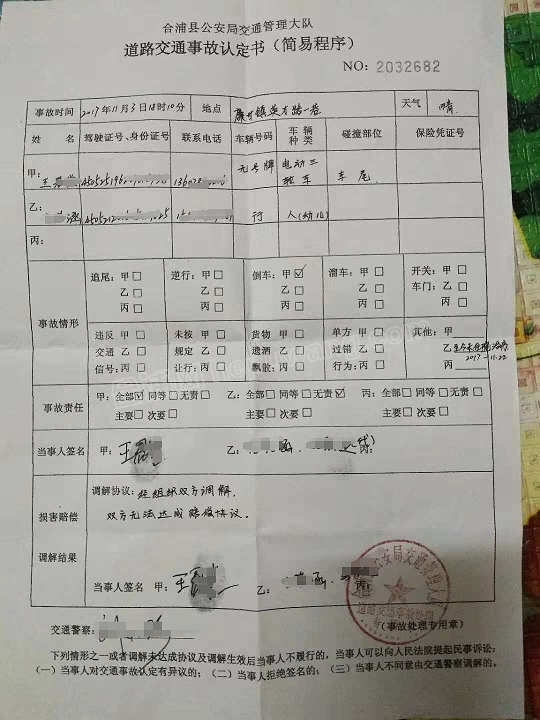 合浦县公安局交通管理大队
道路交通事故认定书（简易程序）
NO: 2032682
事故时间 2017年11月3日18时10分 地点 廉州镇英才路一巷 天气 晴
姓 名 驾驶证号、身份证号 联系电话 车辆号码 车 辆 种类 碰撞部位 保险凭证号
甲: 王 无号牌 电动三轮车 车尾
乙: 行 人(幼儿)
丙:
事故情形
追尾: 甲□ 逆行: 甲□ 倒车: 甲☑ 溜车: 甲□ 开关: 甲□
乙□ 乙□ 乙□ 乙□ 车门: 乙□
丙□ 丙□ 丙□ 丙□ 丙□
违反 甲□ 未按 甲□ 货物 甲□ 单方 甲□ 其他: 甲
交通 乙□ 规定 乙□ 遗洒 乙□ 过错 乙□ 乙
信号: 丙□ 让行: 丙□ 飘散: 丙□ 行为: 丙□ 丙
2017-11-22
事故责任
甲: 全部☑ 同等□ 无责□ 乙: 全部□ 同等□ 无责☑ 丙: 全部□ 同等□ 无责□
主要□ 次要□ 主要□ 次要□ 主要□ 次要□
当事人签名 甲: 王 乙: 丙:
损害赔偿
调解结果
调解协议: 经组织双方调解,
双方无法达成赔偿协议。
当事人签名 甲: 王 乙:
交通警察:
（事故处理专用章）
下列情形之一或者调解未达成协议及调解生效后当事人不履行的，当事人可以向人民法院提起民事诉讼:
（一）当事人对交通事故认定有异议的;（二）当事人拒绝签名的;（三）当事人不同意由交通警察调解的。